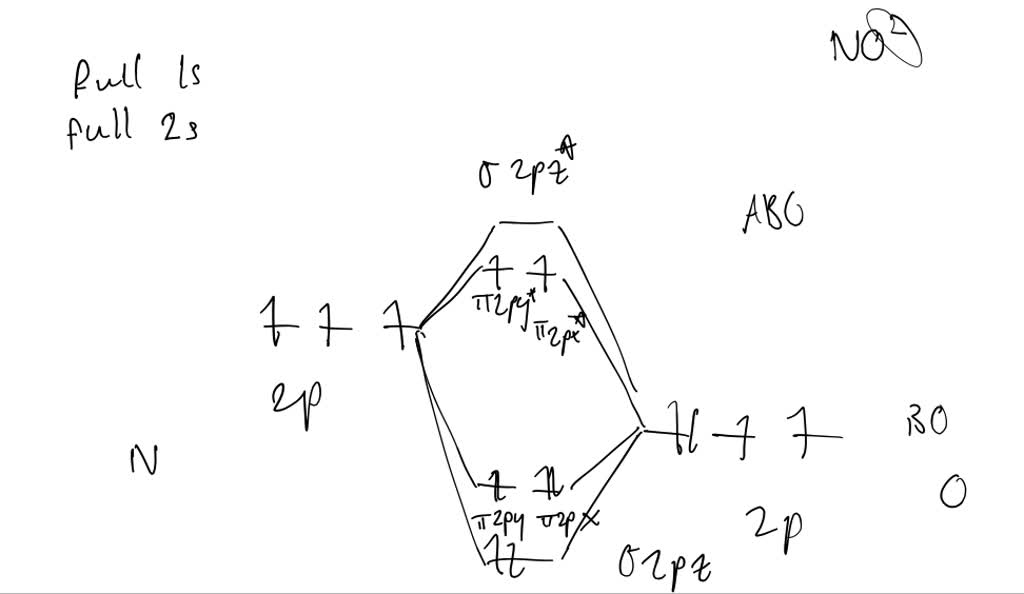 NO²
full 1s
full 2s
σ 2pz*
ABO
π2py*
π2px*
2p
BO
N
O
π2py π2px
2p
σ2pz